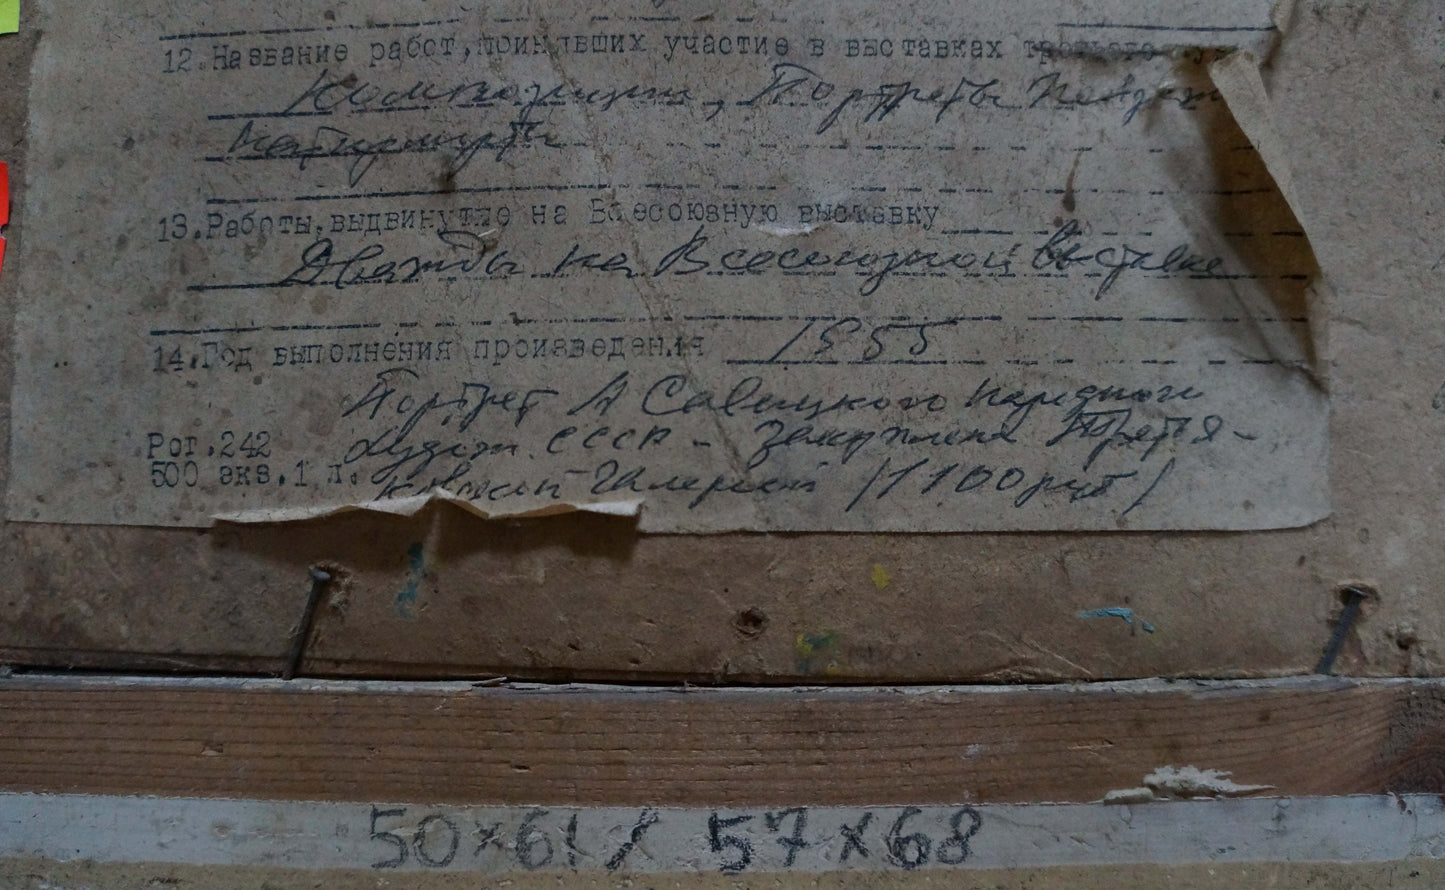 12.Название работ, принявших участие в выставках третьего
Композиции, Портреты Пейзажи
натюрморты
13.Работы, выдвинутые на Всесоюзную выставку
Дважды на Всесоюзной выставке
14.Год выполнения произведения 1955
Портрет А Савицкого народного
худож. СССР - Закуплена Третья-
Рот.242
ковской Галереей (1100 руб)
500 экз.1 л.
50×61 / 57×68